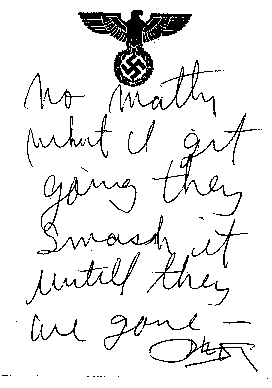 no matter
what I get
going they
smash it
untill they
are gone —